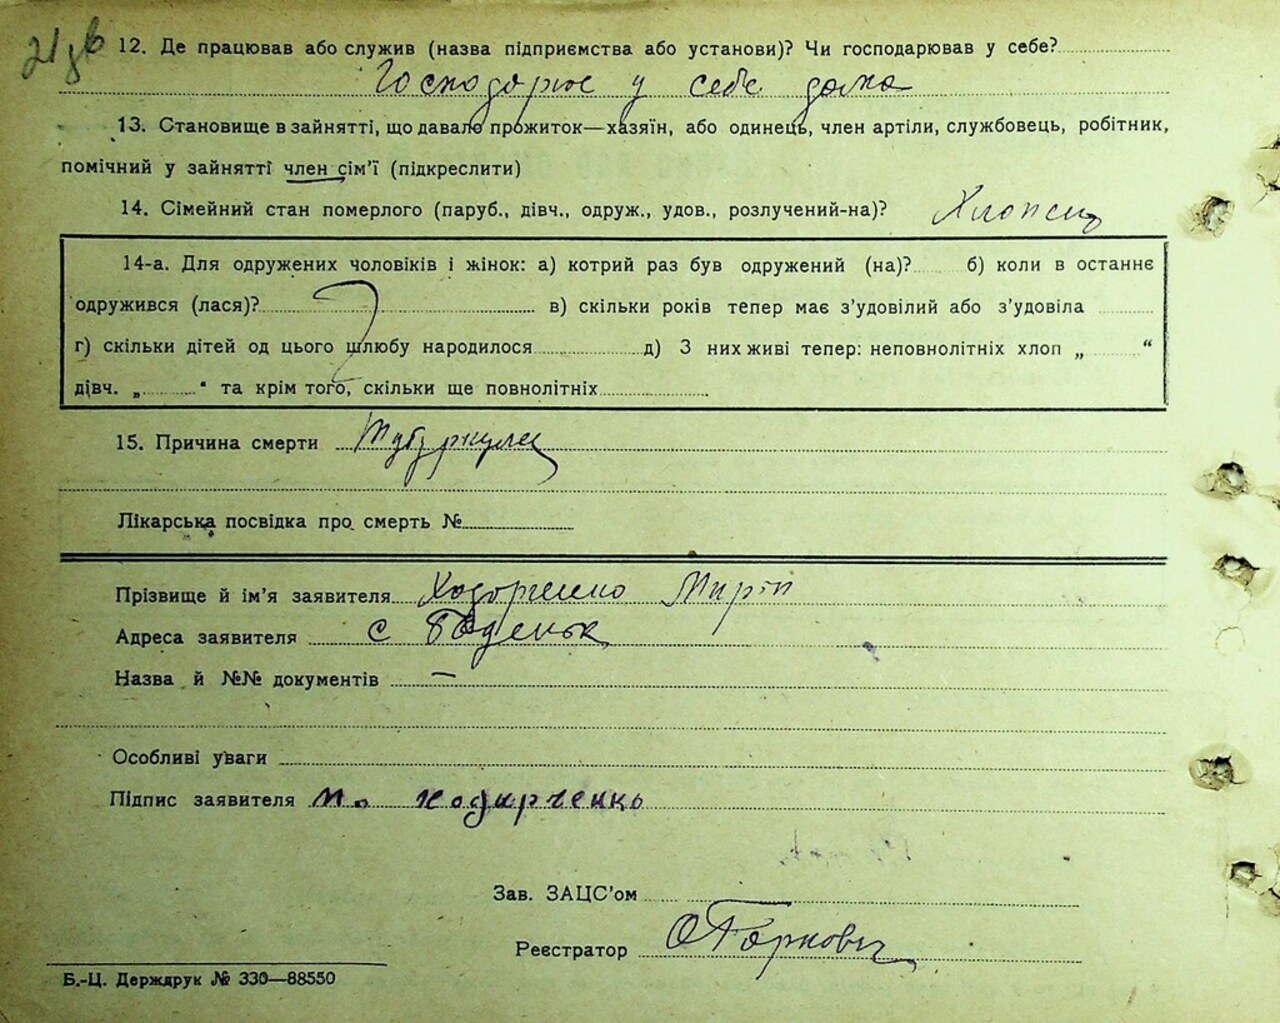 12. Де працював або служив (назва підприємства або установи)? Чи господарював у себе?
Господарює у себе дома
13. Становище в зайнятті, що давало прожиток—хазяїн, або одинець, член артіли, службовець, робітник,
помічний у зайнятті член сім'ї (підкреслити)
14. Сімейний стан померлого (паруб., дівч., одруж., удов., розлучений-на)? Хлопець
14-а. Для одружених чоловіків і жінок: а) котрий раз був одружений (на)? б) коли в останнє
одружився (лася)? в) скільки років тепер має з'удовілий або з'удовіла
г) скільки дітей од цього шлюбу народилося д) З них живі тепер: неповнолітніх хлоп „ “
дівч. „ “ та крім того, скільки ще повнолітніх
15. Причина смерти Туберкулез
Лікарська посвідка про смерть №
Прізвище й ім'я заявителя Ходорченко
Адреса заявителя с
Назва й №№ документів —
Особливі уваги
Підпис заявителя М. ходирченко
Зав. ЗАЦС'ом
Реєстратор
Б.-Ц. Держдрук № 330—88550